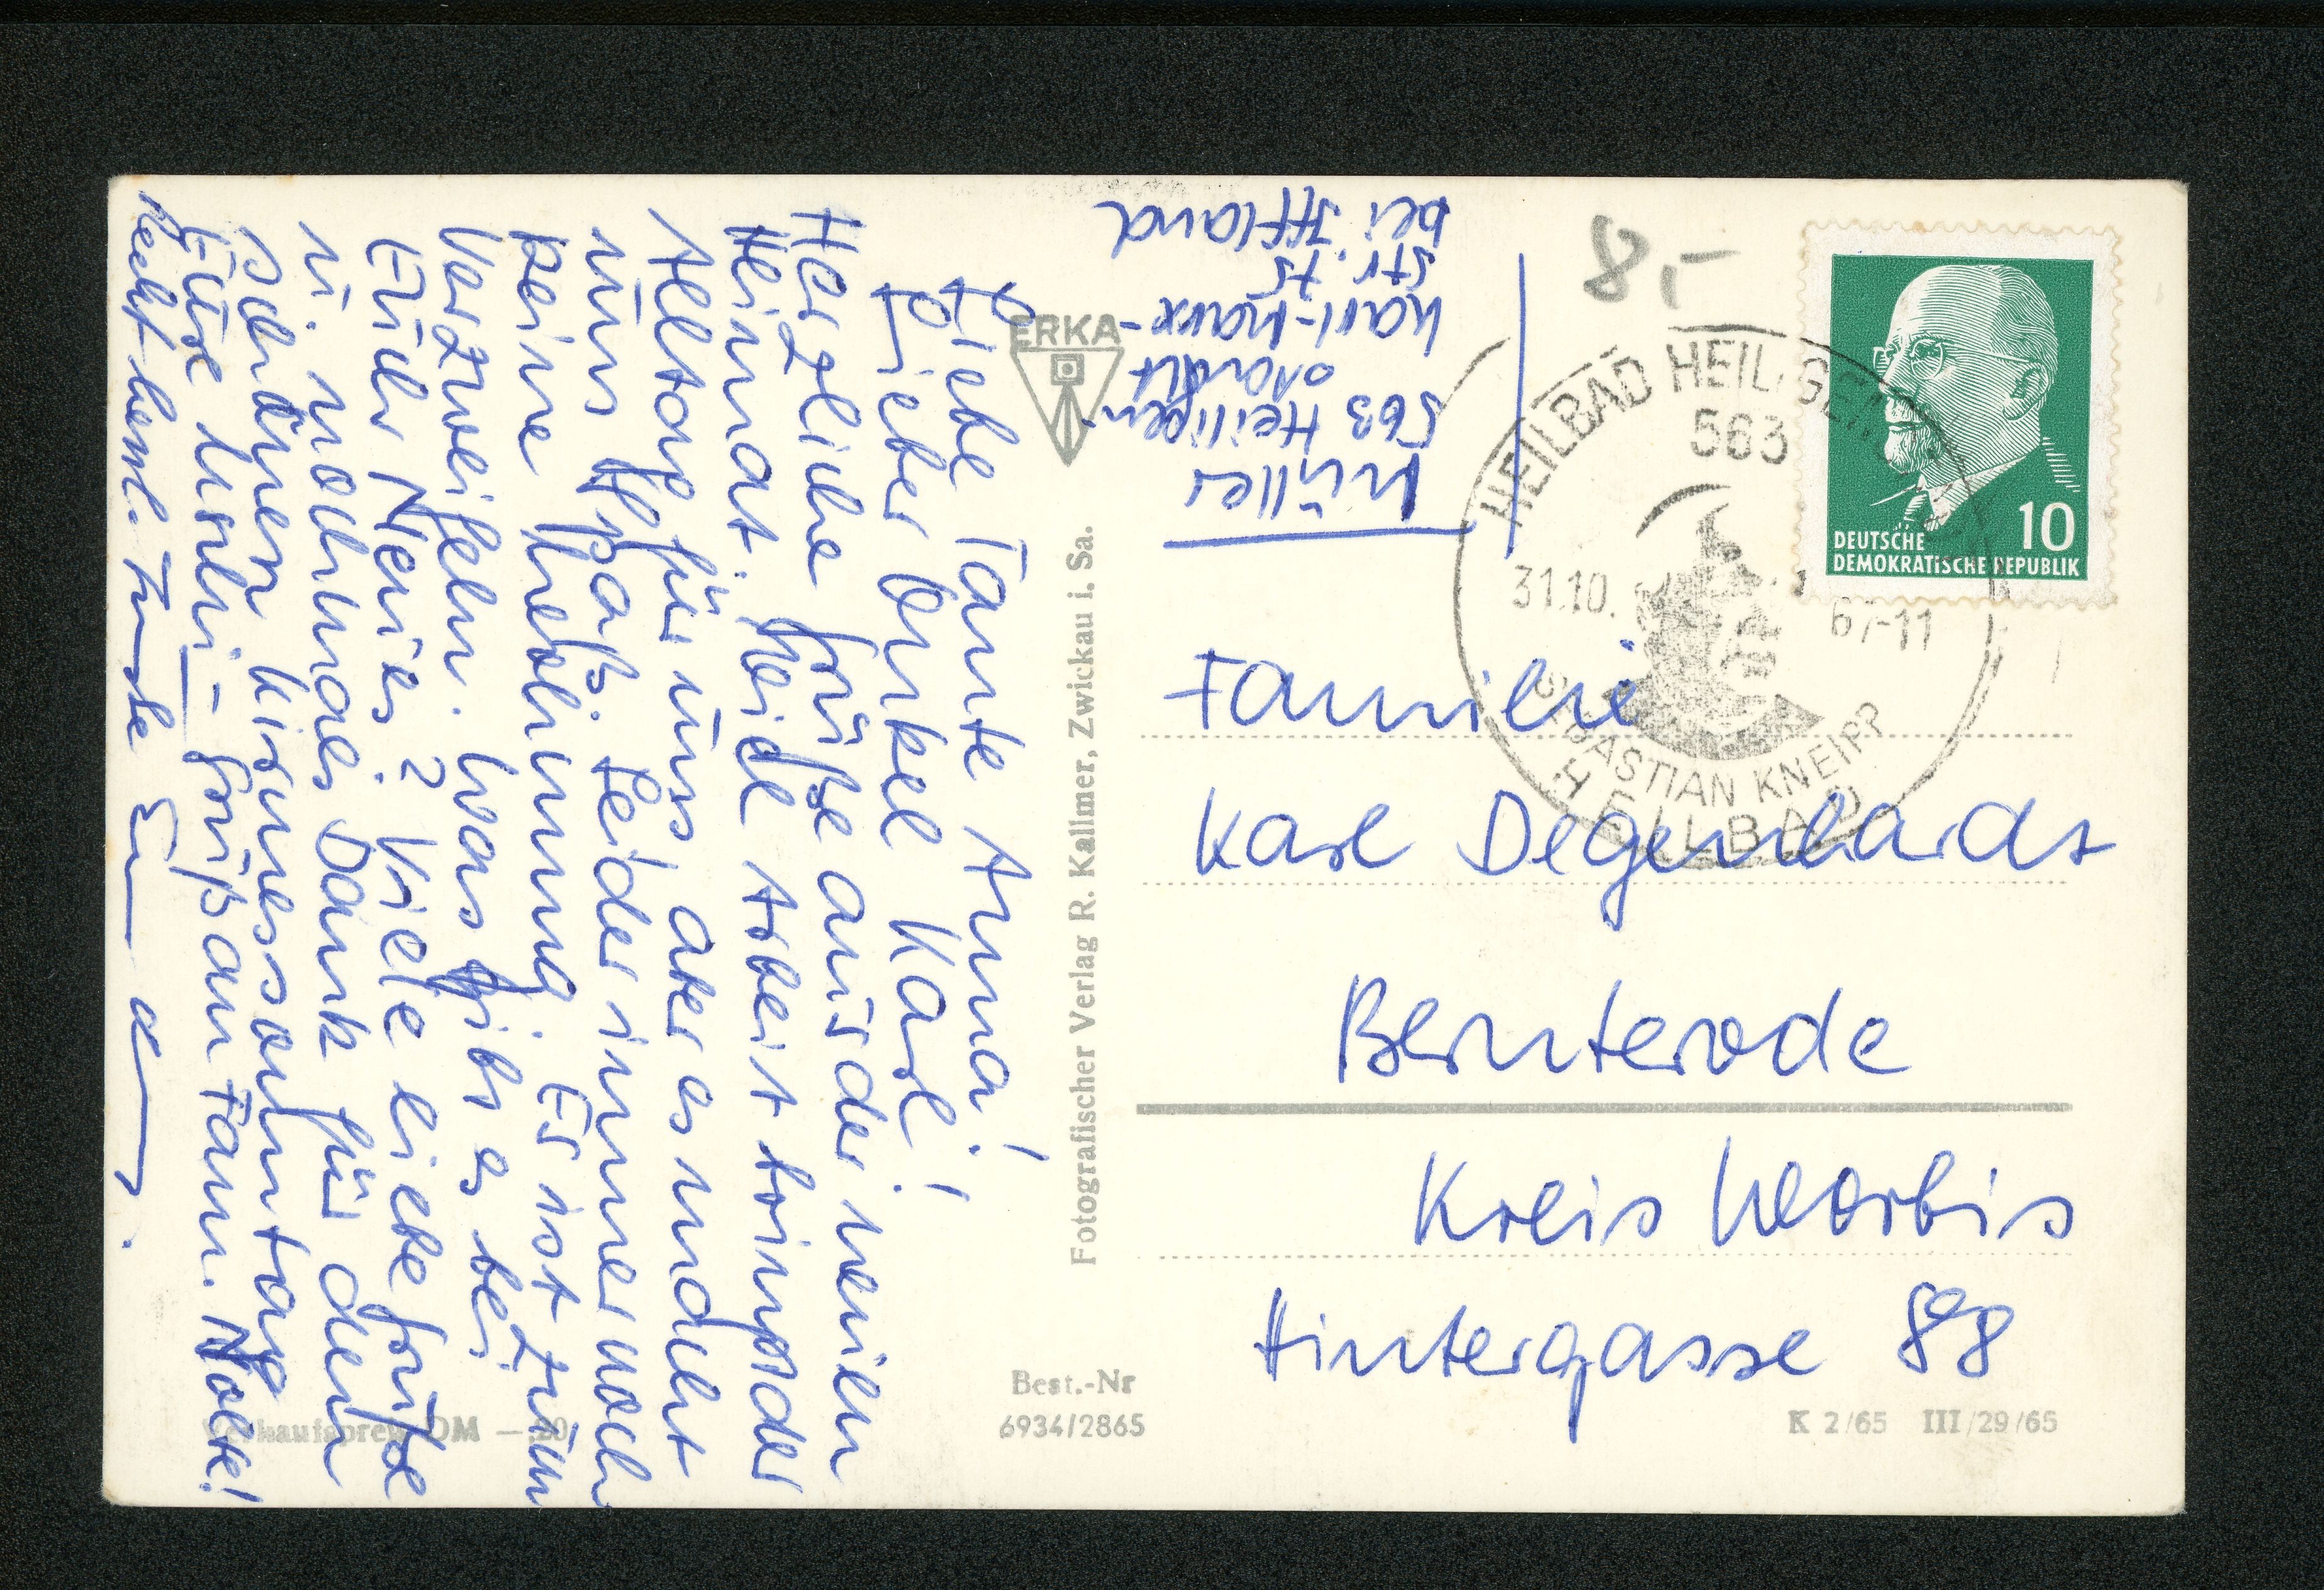 Liebe Tante Anna!
Lieber Onkel Karl!
Herzliche Grüße aus der neuen
Heimat. Viel Arbeit bringt der
Alltag für uns, aber es macht
uns Spaß. Leider immer noch
keine Wohnung. Es ist zum
Verzweifeln. Was gibt es bei
Euch Neues? Viele liebe Grüße
u. nochmals Dank für den
schönen Kirmessonntag
Eure Uschi - Grüß an Fam. Nolte!
Recht herzl.
Müller
563 Heiligen-
stadt
Karl-Marx-
Str. 15
bei Iffland
8,-
ERKA
Fotografischer Verlag R. Kallmer, Zwickau i. Sa.
HEILBAD HEILIGEN
563
31.10. 67-11
SEBASTIAN KNEIPP
HEILBAD
10
DEUTSCHE
DEMOKRATISCHE REPUBLIK
Familie
Karl Degenhardt
Bernterode
Kreis Worbis
Hintergasse 88
Verkaufspreis DM —,20
Best.-Nr
6934/2865
K 2/65 III/29/65